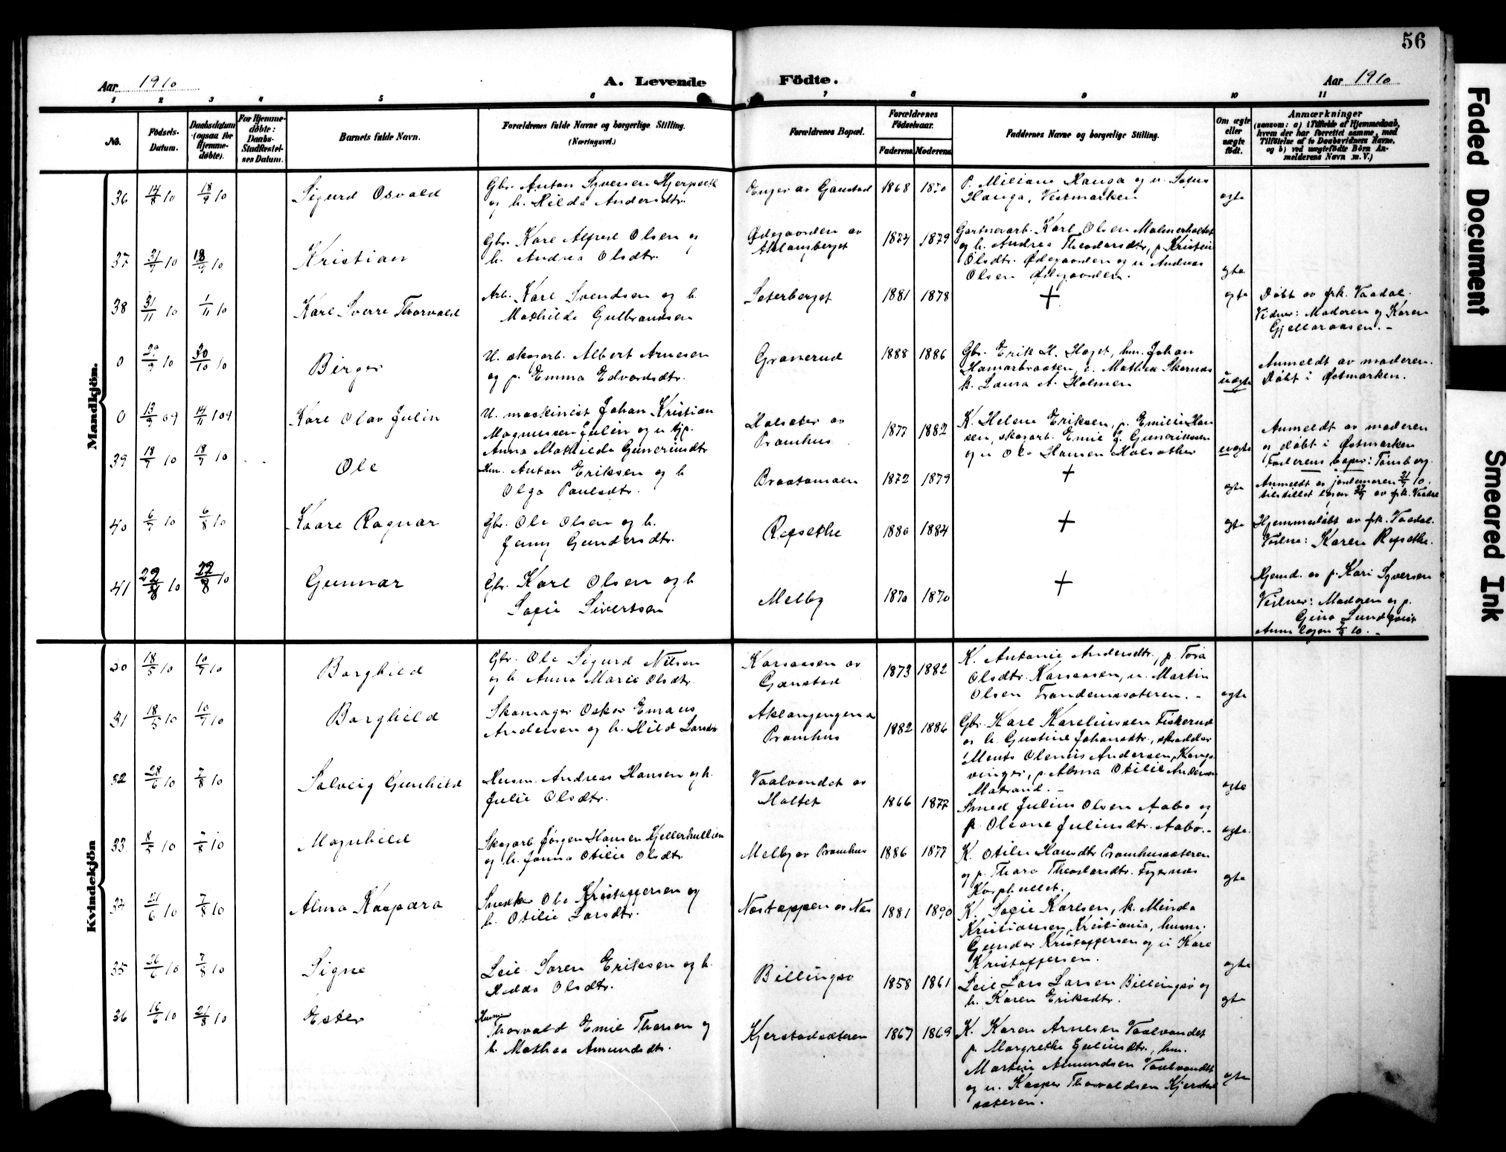 56
Aar 1910
A. Levende
Födte.
Aar 1910
1 2 3 4 5 6 7 8 9 10 11
No.
Födsels-
Datum.
Daabsdatum
(ogsaa for
Hjemme-
döbte).
For Hjemme-
döbte:
Daabs-
Stadfæstel-
ses Datum.
Barnets fulde Navn.
Forældrenes fulde Navne og borgerlige Stilling.
(Næringsvei.)
Forældrenes Bopæl.
Forældrenes
Födselsaar.
Faderens Moderens
Faddernes Navne og borgerlige Stilling.
Om ægte
eller
uægte
födt.
Anmærkninger
Mandkjön.
36 14/8 10 18/9 10
Sigurd Osvald
Gbr. Anton Syversen
og h. Hilda Andersdtr.
Enger av Gaustad
1868
P. Miliane Hansa og u.
Hauga, Vestmarken
egte
37 10 18/9 10
Kristian
Gbr. Karl Alfred Olsen og
h. Andrea Olsdtr.
Ødegaarden av
Aklangberget
1874 1879
Gartnerarb. Karl Olsen
og h. Andrea Theodorsdtr., p. Kristin
Olsdtr. Ødegaarden og u. Andreas
Olsen Ødegaarden.
egte
38 31/11 10 1/11 10
Karl Sverre Thorvald
Arb. Karl Svendsen og h.
Mathilde Gulbrandsen
Seterberget
1881 1878
+
egte
Døbt av frk. Vaadal.
Vidner: Moderen og Karen
Gjelleraasen.
0 10 30/10 10
Birger
U. skogarb. Albert Arnesen
og p. Emma Edvardsdtr.
Granerud
1888 1886
Gbr. Erik H. Haget, hm. Johan
Hamarbraaten, p. Mathea Skarnæs
k. Laura A. Holmen
uegte
Anmeldt av moderen.
Døbt i Østmarken.
0 13/9 09 14/11 09
Karl Olav Julin
U. maskinist Johan Kristian
Magnussen Julin og u. tjp.
Anna Mathilde Gunerudtr.
Holseter av
Bramhus
1877 1882
K. Helene Eriksen, p. Emilie Han-
sen, skogarb. Emil G. Gundriksen
og u. Ole Hansen Holseter
uegte
Anmeldt av moderen
og døbt i Østmarken
Faderens bopæl: Tønsberg.
39 18/7 10 18/7 10
Ole
Hm. Anton Eriksen og h.
Olga Paulsdtr.
Braatamoen
1872 1879
+
egte
Anmeldt av jordemoren 21/7 10.
40 6/7 10 6/8 10
Kaare Ragnar
Gbr. Ole Olsen og h.
Jenny Gundersdtr.
Rogsethe
1880 1884
+
egte
Hjemmedøbt av frk. Vaadal.
Vidne: Karen Rogsethe.
41 29/8 10 22/8 10
Gunnar
Gbr. Karl Olsen og h.
Sofie Sivertsen
Melby
1870 1870
+
Hjemd. av p. Kari Syversen
Vidner: Moderen og p.
Gina Lundqvist
Kvindekjön
30 18/5 10 10/7 10
Borghild
Gbr. Ole Sigurd Nilsen
og h. Anna Marie Olsdtr.
Karsaasen av
Gaustad
1873 1882
K. Antonie Andersdtr., p. Tora
Olsdtr. Karsaasen, u. Martin
Olsen Trondemossteren.
egte
31 18/5 10 10/7 10
Borghild
Skomager Oskar Emanus
Andersen og h. Hild Larsdtr
Aklangengen a
Bramhus
1882 1886
Gbr. Karl Karelinssen Fiskerud
og h. Gustine Johansdtr., skrædder
Ments Olenius Andersen, Kongs-
vinger, p. Alma Otilie Andersen
Matrand.
egte
32 28/6 10 7/8 10
Solveig Gunhild
Husm. Andreas Hansen og h.
Julie Olsdtr.
Vaalvandet av
Holtet
1866 1877
Smed Julius Olsen Aabo og
p. Oleane Juliusdtr. Aabo.
egte
33 8/5 10 7/8 10
Magnhild
Skogarb. Jørgen Hansen
og h. Janna Otilie Olsdtr.
Melby av Bramhus
1886 1877
K. Otilie Hansdtr. Bramhussæteren
og p. Thora Theodorsdtr.
egte
34 21/6 10 7/8 10
Alma Kaspara
Snedker Ole Kristoffersen og
h. Otilie Larsdtr.
Nostoppen av Nos
1881 1890
K. Sofie Karlsen, k. Minda
Kristiansen, Kristiania, husm.
Gunder Kristoffersen og u. Karl
Kristoffersen.
egte
35 26/6 10 7/8 10
Signe
Leil. Søren Eriksen og h.
Hedda Olsdtr.
Billingsø
1858 1861
Leil. Lars Larsen Billingsø og
h. Karen Eriksdtr.
egte
36 16/6 10 21/8 10
Ester
Husm.
Thorvald Emil Thorsen og
h. Mathea Amundsdtr.
Kjerstadsæteren
1867 1869
K. Karen Arnesen Vaalvandet
p. Margrethe Juliusdtr., hm.
Martin Amundsen Vaalvandet
og u. Kasper Thorvaldsen Kjerstad
sæteren.
egte
Faded Document
Smeared Ink